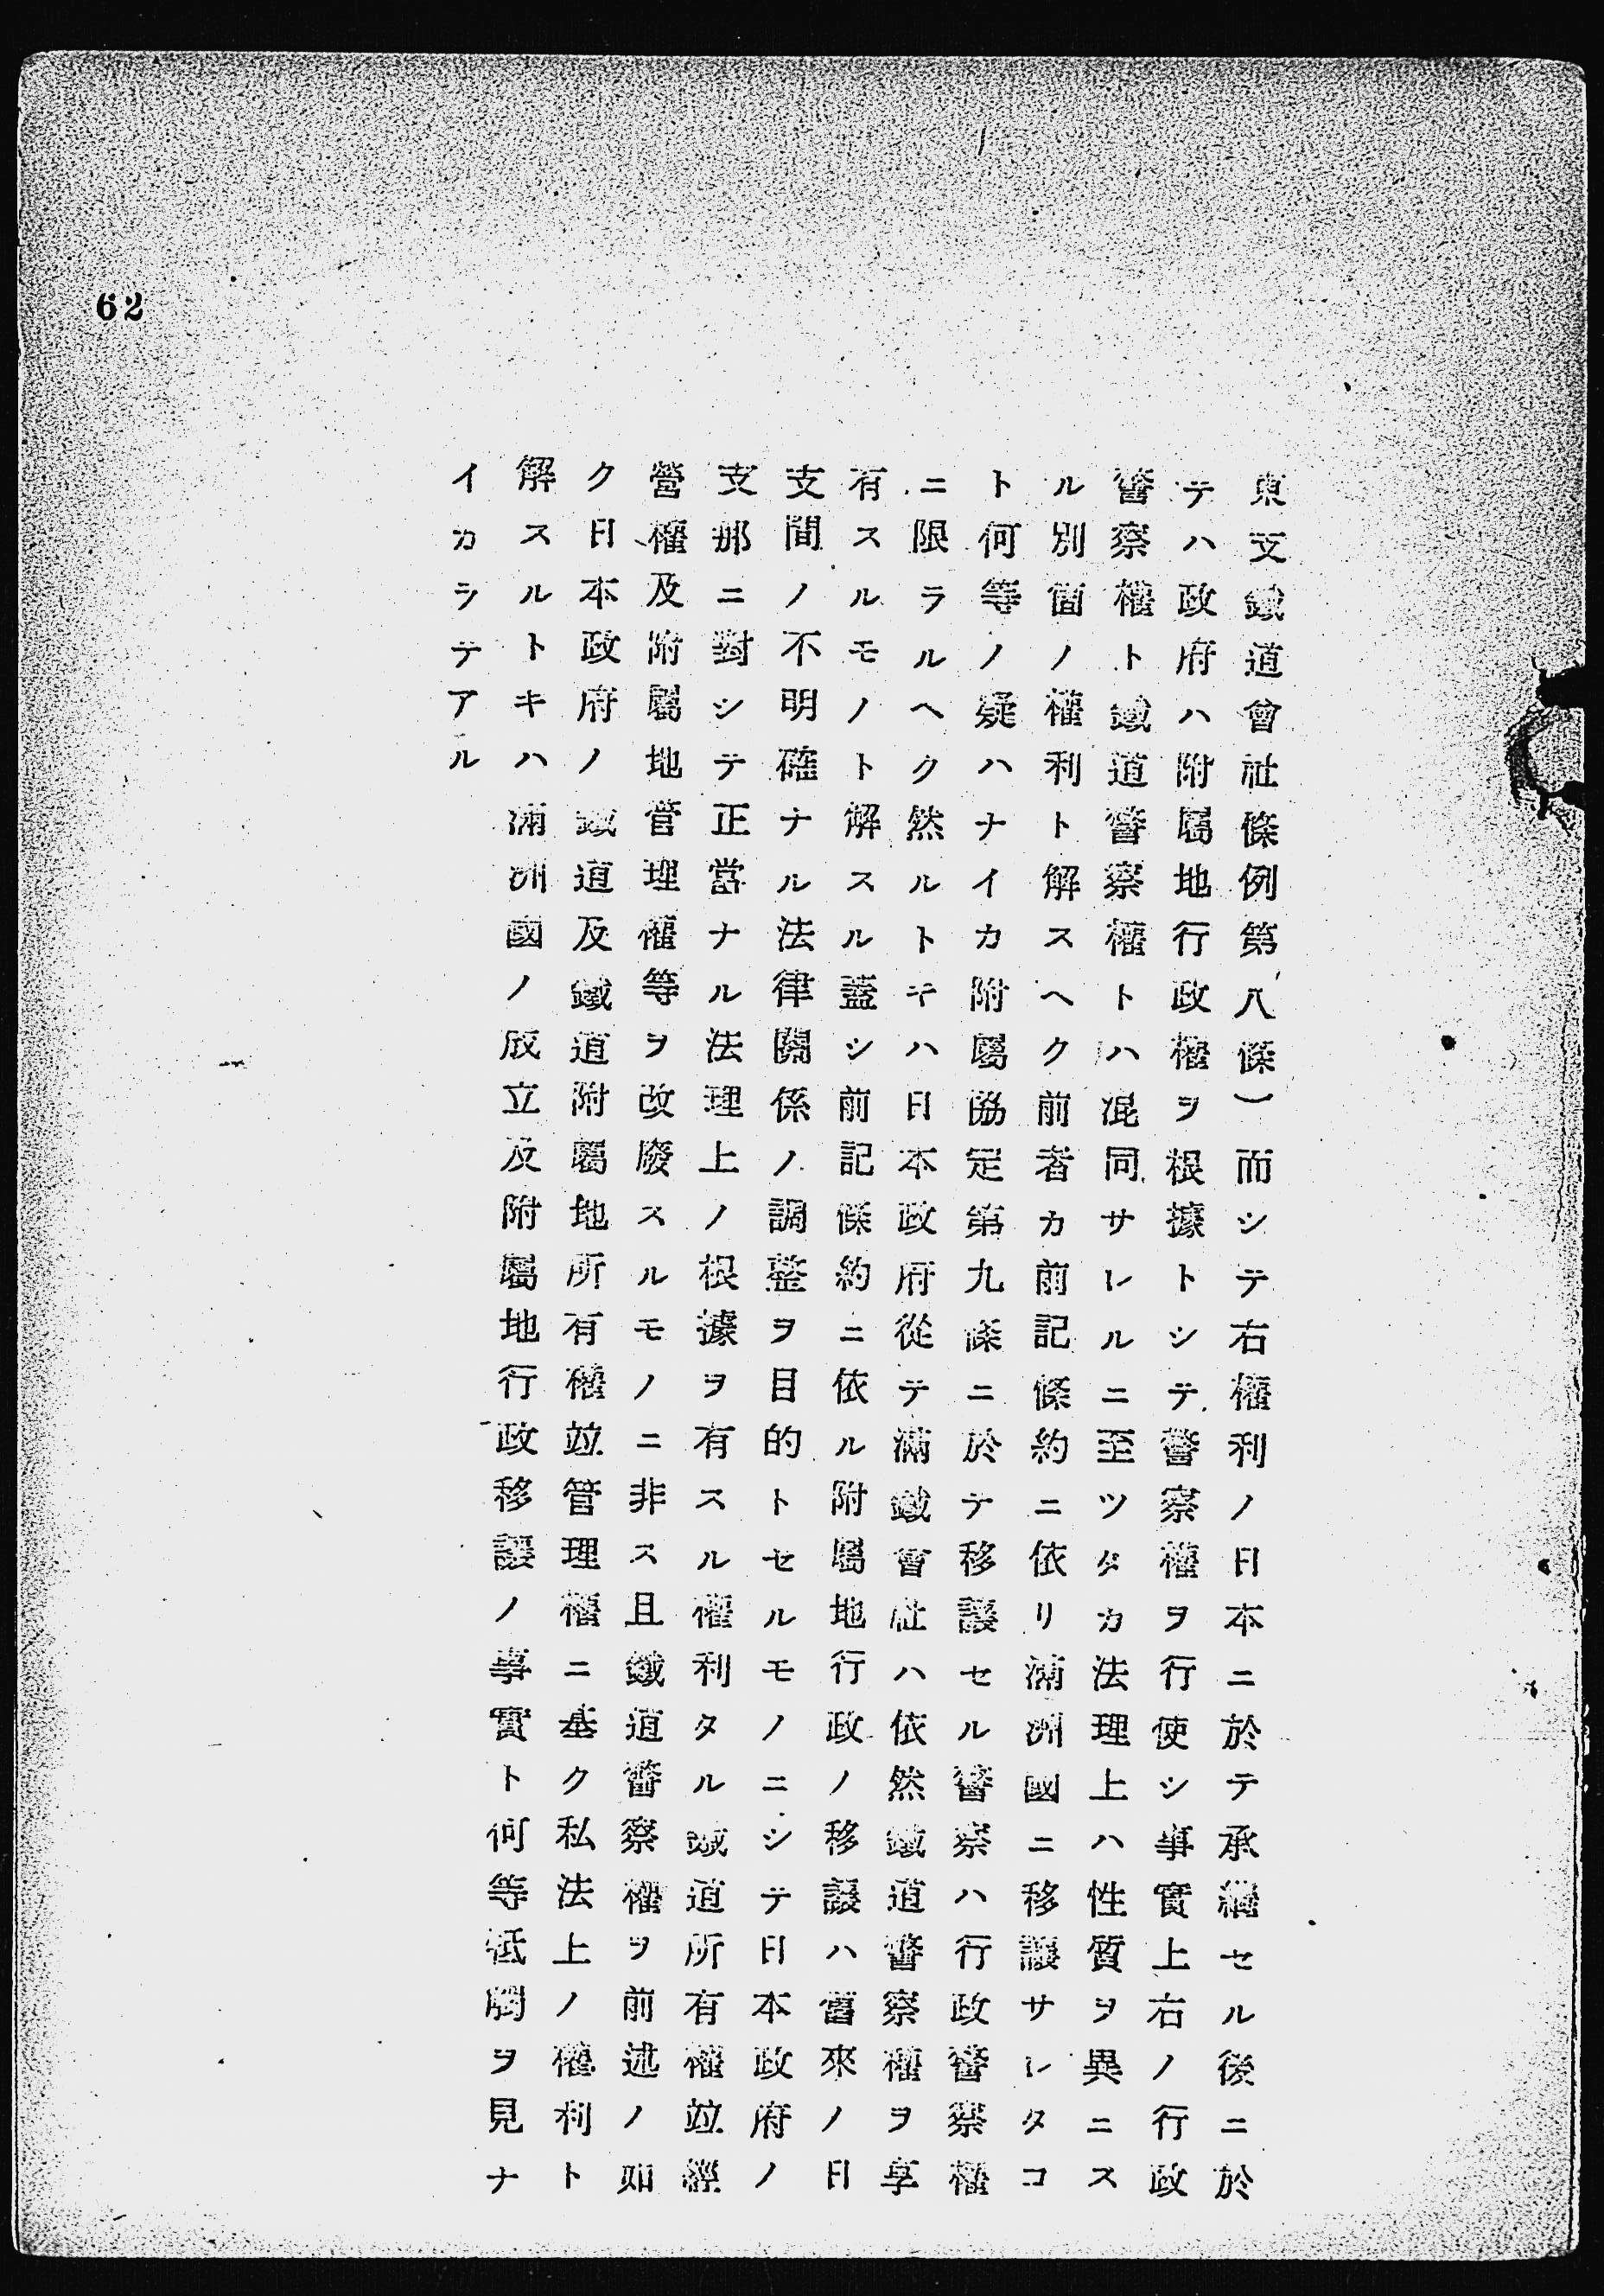 東支鐵道會社條例第八條)而シテ右權利ノ日本ニ於テ承繼セル後ニ於
テハ政府ハ附屬地行政權ヲ根據トシテ警察權ヲ行使シ事實上右ノ行政
警察權ト鐵道警察權トハ混同サレルニ至ツタカ法理上ハ性質ヲ異ニス
ル別箇ノ權利ト解スヘク前者カ前記條約ニ依リ滿洲國ニ移讓サレタコ
ト何等ノ疑ハナイカ附屬協定第九條ニ於テ移讓セル警察ハ行政警察權
ニ限ラルヘク然ルトキハ日本政府從テ滿鐵會社ハ依然鐵道警察權ヲ享
有スルモノト解スル蓋シ前記條約ニ依ル附屬地行政ノ移讓ハ舊來ノ日
支間ノ不明確ナル法律關係ノ調整ヲ目的トセルモノニシテ日本政府ノ
支那ニ對シテ正當ナル法理上ノ根據ヲ有スル權利タル鐵道所有權竝經
營權及附屬地管理權等ヲ改廢スルモノニ非ス且鐵道警察權ヲ前述ノ如
ク日本政府ノ鐵道及鐵道附屬地所有權竝管理權ニ基ク私法上ノ權利ト
解スルトキハ滿洲國ノ成立及附屬地行政移讓ノ事實ト何等牴觸ヲ見ナ
イカラテアル
62